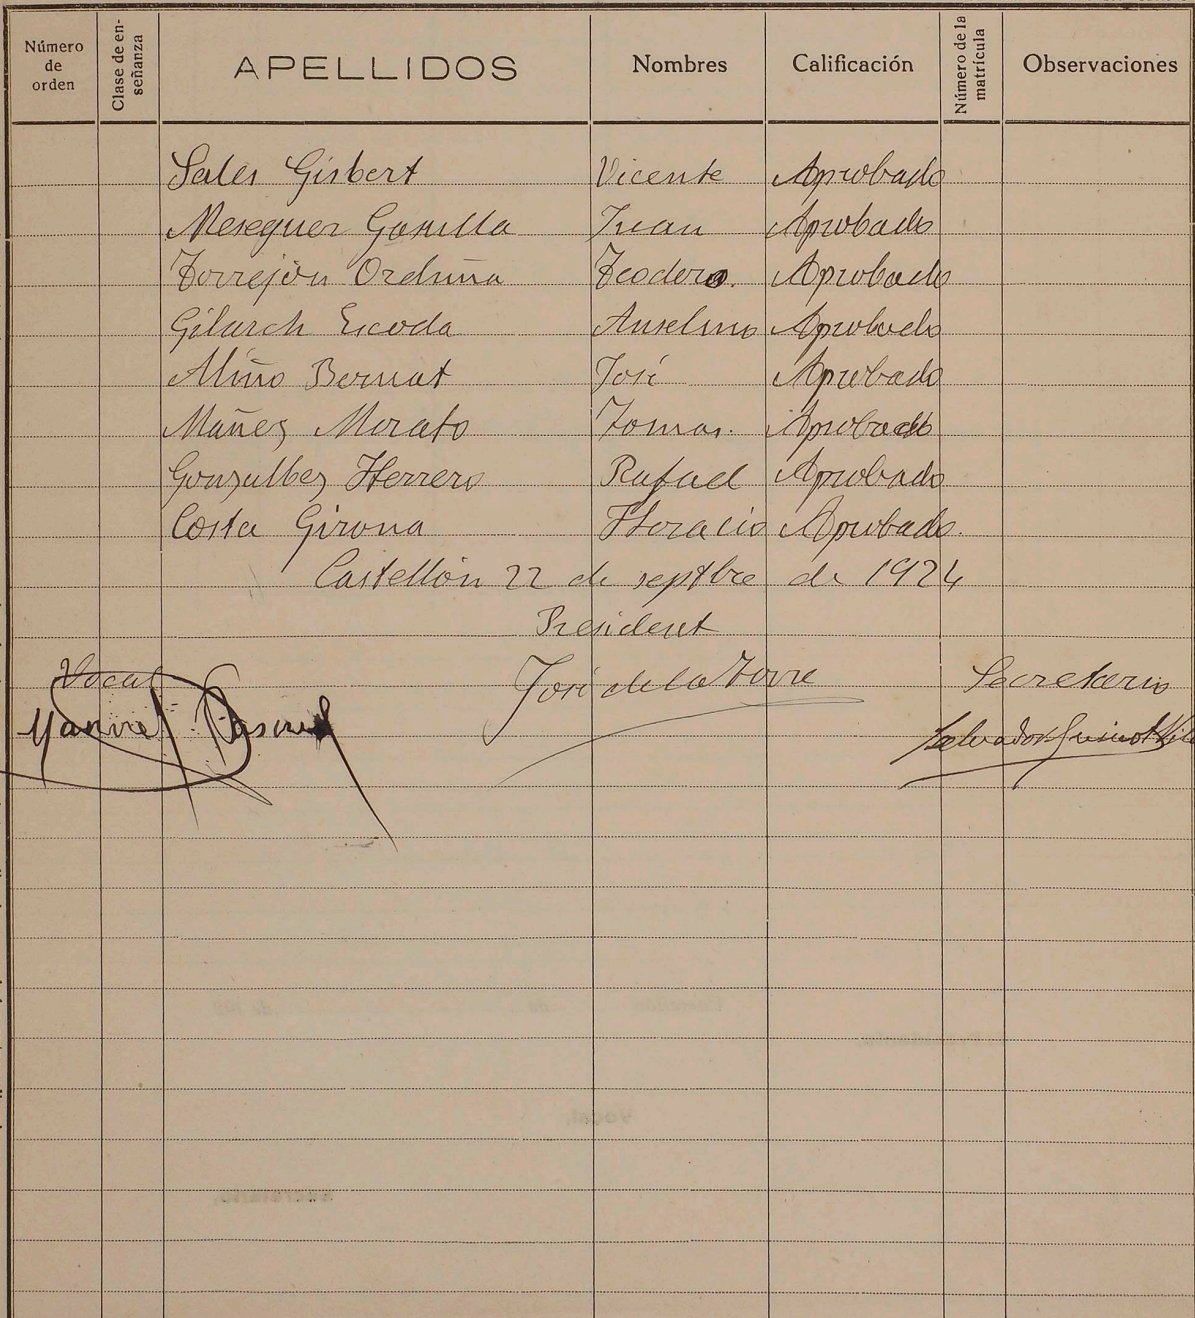 Número de orden Clase de en-señanza APELLIDOS Nombres Calificación Número de la matrícula Observaciones
Sales Gisbert Vicente Aprobado
Meseguer Juan Aprobado
Torrejón Orduña Teodoro. Aprobado
Gilarch Escoda Anselmo Aprobado
Miño Bernat José Aprobado
Mañez Morato Tomas. Aprobado
Gonzalbez Herrero Rafael Aprobado
Costa Girona Horacio Aprobado.
Castellón 22 de septbre de 1924
President
Vocal José de la Torre Secretario
Manuel Pascual Salvador Guinot